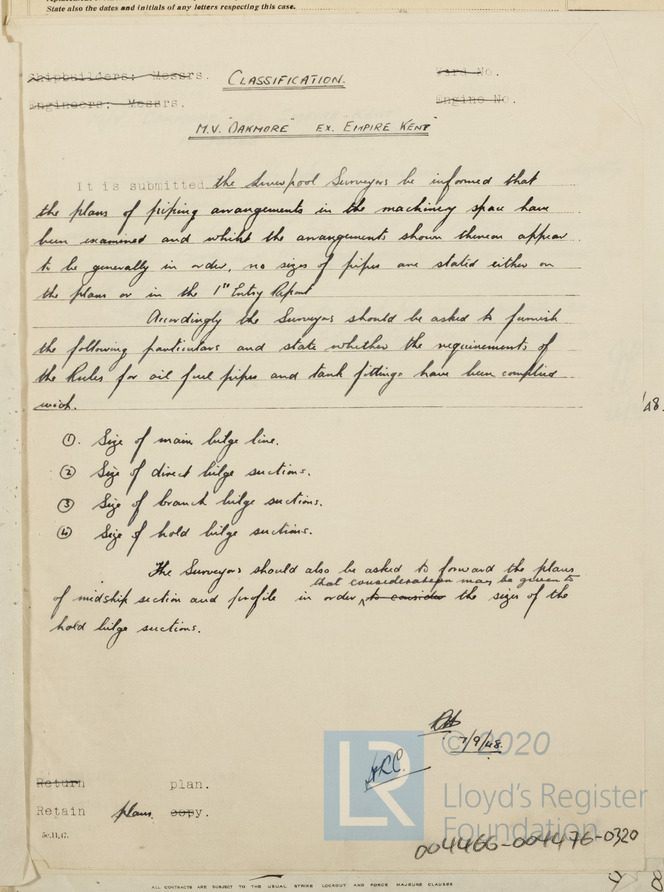 State also the dates and initials of any letters respecting this case.
Shipbuilders: Messrs. CLASSIFICATION. Yard No.
Engineers: Messrs. Engine No.
M.V. "OAKMORE" EX. EMPIRE KENT
It is submitted the Liverpool Surveyors be informed that
the plans of piping arrangements in the machinery space have
been examined and whilst the arrangements shown thereon appear
to be generally in order, no sizes of pipes are stated either on
the plans or in the 1st Entry Report
Accordingly the Surveyors should be asked to furnish
the following particulars and state whether the requirements of
the Rules for oil fuel pipes and tank fittings have been complied
with.
'48.
① Size of main bilge line.
② Size of direct bilge suctions.
③ Size of branch bilge suctions.
④ Size of hold bilge suctions.
The Surveyors should also be asked to forward the plans
that consideration may be given to
of midship section and profile in order to consider the sizes of the
hold bilge suctions.
7/9/48.
© 2020
LR
Lloyd's Register
Foundation
Return plan.
Retain plans copy.
5c.11,47.
004466-004476-0320
ALL CONTRACTS ARE SUBJECT TO THE USUAL STRIKE LOCKOUT AND FORCE MAJEURE CLAUSES